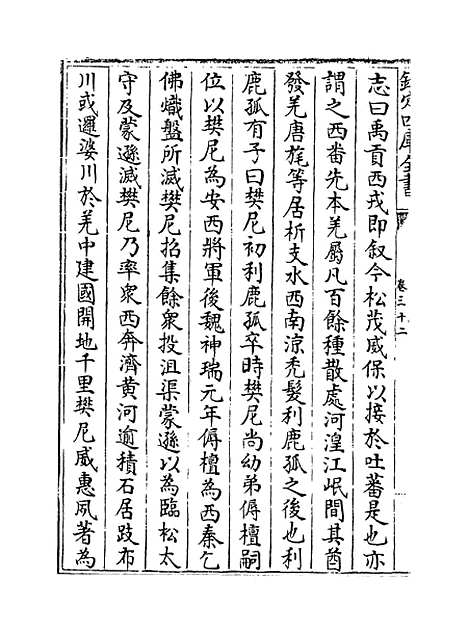 欽定四庫全書
卷三十二
志曰禹貢西戎即叙今松茂威保以接於吐蕃是也亦
謂之西畨先本羌屬凡百餘種散處河湟江岷間其酋
發羌唐旄等居析支水西南涼禿髮利鹿孤之後也利
鹿孤有子曰樊尼初利鹿孤卒時樊尼尚幼弟傉檀嗣
位以樊尼為安西將軍後魏神瑞元年傉檀為西秦乞
佛熾盤所滅樊尼招集餘衆投沮渠蒙遜以為臨松太
守及蒙遜滅樊尼乃率衆西奔濟黄河逾積石居跂布
川或邏娑川於羌中建國開地千里樊尼威惠夙著為